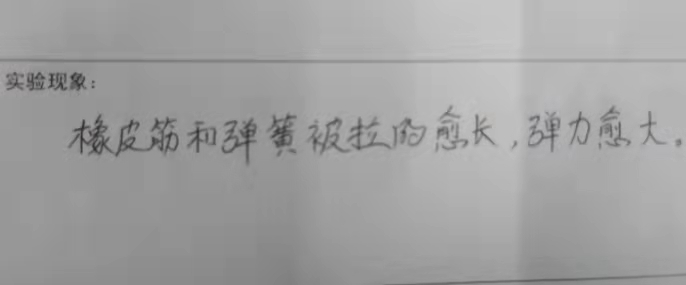 实验现象：
橡皮筋和弹簧被拉的愈长，弹力愈大。